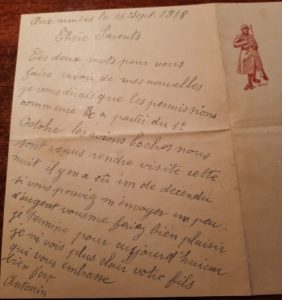 Aux armées le 16 Sept 1918
Cheic Parents
Ces deux mots pour vous
faire savoir de mes nouvelles
je vous dirais que les permissions
commence a partir du 1e
Octobre les avions boches nous
sont venus rendre visite cette
nuit il y en a eu im de decendu
si vous pouviz m'envoyer un peu
d'argent vous me feriez bien plaisir
je termine pour aujourd'hui car
je ni vois plus clair votre fils
qui vous embrasse
bien fort
Antonin